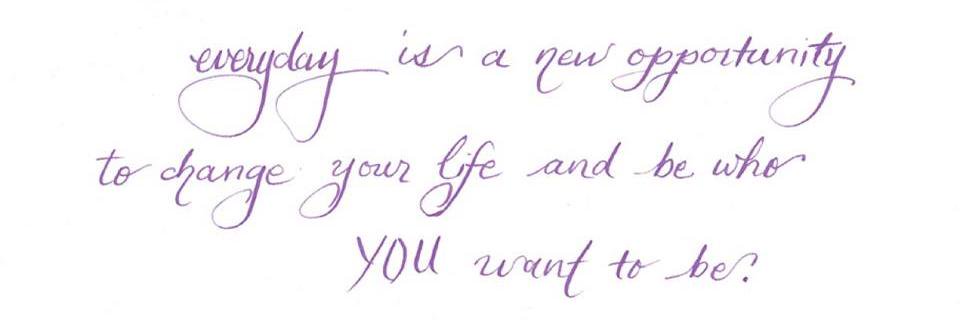 everyday is a new opportunity
to change your life and be who
YOU want to be?